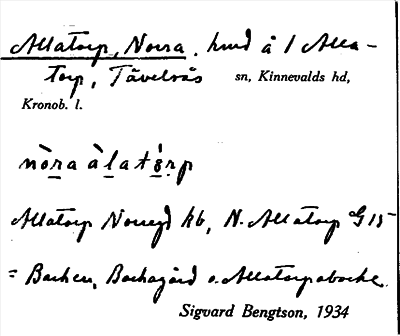 Allatorp, Norra. hmd å 1 Alla-
torp, Tävelsås sn, Kinnevalds hd,
Kronob. l.
nò̱ra àḻató̱rp
Allatorp Norregd kb, N. Allatorp G 15
= Backen, Backagård o. Allatorpabacke.
Sigvard Bengtson, 1934